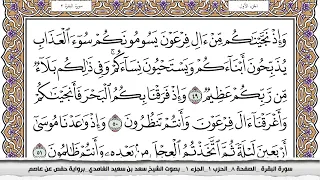 الجزء الأول
سورة البقرة ٢
وَإِذْ نَجَّيْنَاكُم مِّنْ ءَالِ فِرْعَوْنَ يَسُومُونَكُمْ سُوٓءَ الْعَذَابِ
يُذَبِّحُونَ أَبْنَآءَكُمْ وَيَسْتَحْيُونَ نِسَآءَكُمْ ۚ وَفِى ذَٰلِكُم بَلَآءٌ
مِّن رَّبِّكُمْ عَظِيمٌ ٤٩ وَإِذْ فَرَقْنَا بِكُمُ الْبَحْرَ فَأَنجَيْنَاكُمْ
وَأَغْرَقْنَآ ءَالَ فِرْعَوْنَ وَأَنتُمْ تَنظُرُونَ ٥٠ وَإِذْ وَٰعَدْنَا مُوسَىٰٓ
أَرْبَعِينَ لَيْلَةً ثُمَّ اتَّخَذْتُمُ الْعِجْلَ مِنۢ بَعْدِهِۦ وَأَنتُمْ ظَٰلِمُونَ ٥١
سورة البقرة الصفحة ٨ الحزب ١ الجزء ١ بصوت الشيخ سعد بن سعيد الغامدي برواية حفص عن عاصم